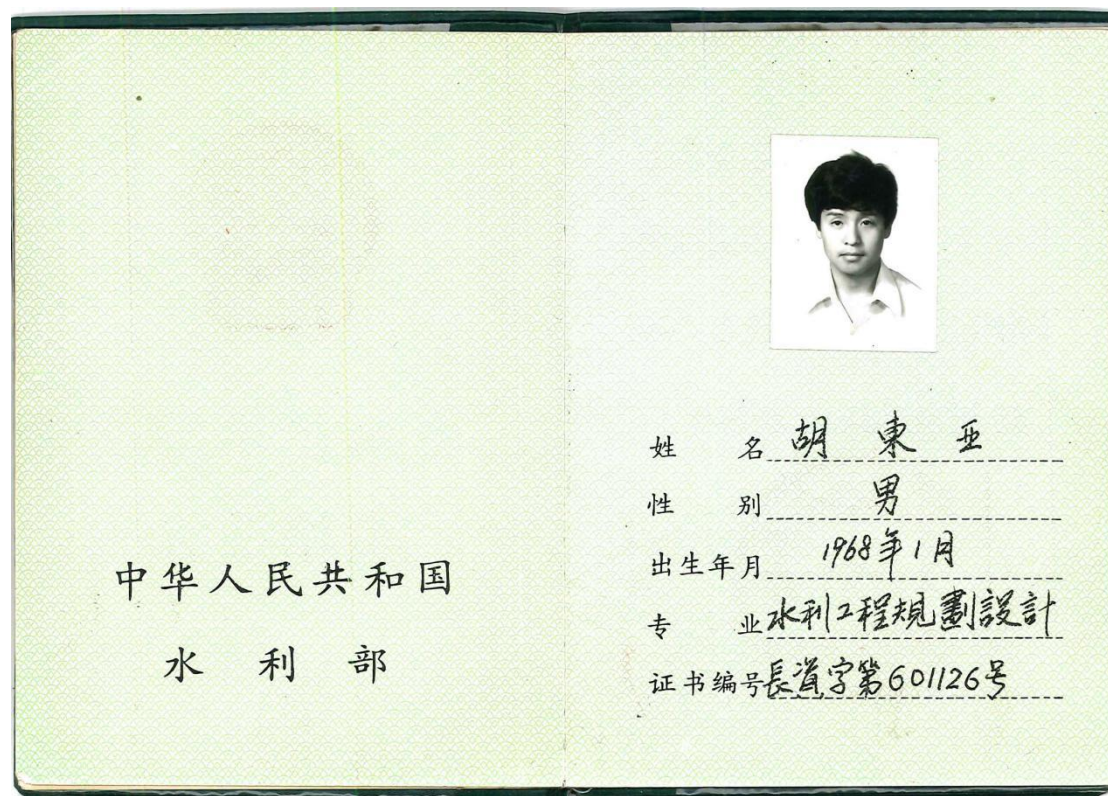 中华人民共和国
水利部
姓名 胡東亚
性别 男
出生年月 1968年1月
专业 水利工程規劃設計
证书编号 長資字第601126号